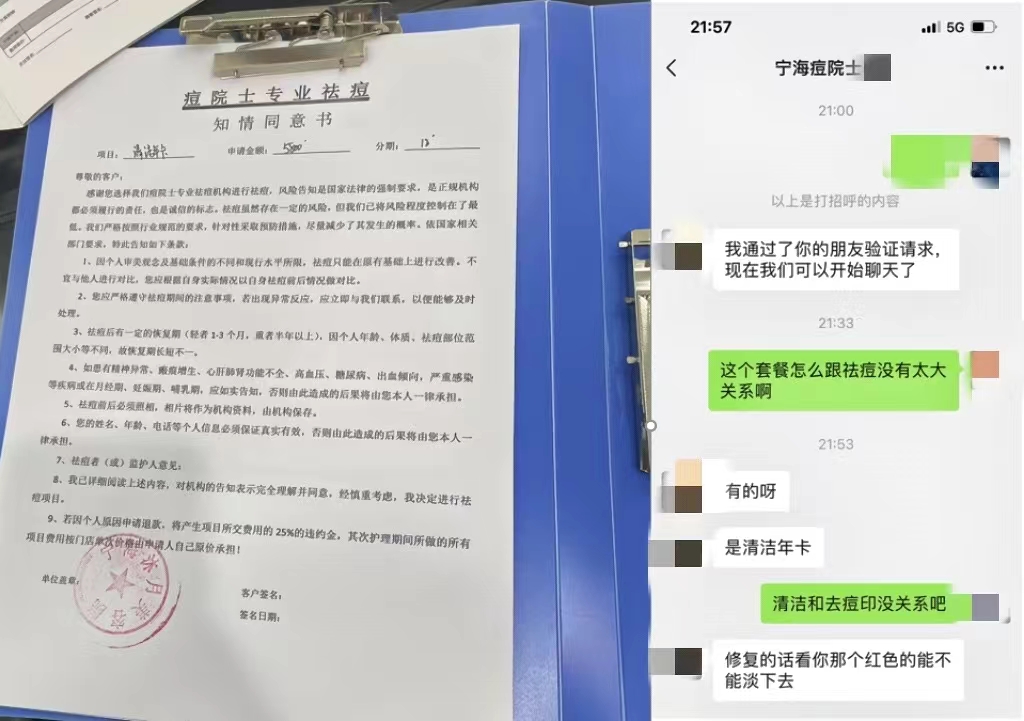 痘院士专业祛痘
知情同意书
项目：清洁卡 申请金额：5800 分期：12
尊敬的客户：
感谢您选择我们痘院士专业祛痘机构进行祛痘，风险告知是国家法律的强制要求，是正规机构
都必须履行的责任，也是诚信的标志。祛痘虽然存在一定的风险，但我们已将风险程度控制在了最
低。我们严格按照行业规范的要求，针对性采取预防措施，尽量减少了其发生的概率。依国家相关
部门要求，特此告知如下条款：
1、因个人审美观念及基础条件的不同和现行水平所限，祛痘只能在原有基础上进行改善。不
宜与他人进行对比，您应根据自身实际情况以自身祛痘前后情况做对比。
2、您应严格遵守祛痘期间的注意事项，若出现异常反应，应立即与我们联系，以便能够及时
处理。
3、祛痘后有一定的恢复期（轻者1-3个月，重者半年以上），因个人年龄、体质、祛痘部位范
围大小等不同，故恢复期长短不一。
4、如患有精神异常、瘢痕增生、心肝肺肾功能不全、高血压、糖尿病、出血倾向，严重感染
等疾病或在月经期、妊娠期、哺乳期，应如实告知，否则由此造成的后果将由您本人一律承担。
5、祛痘前后必须照相，相片将作为机构资料，由机构保存。
6、您的姓名、年龄、电话等个人信息必须保证真实有效，否则由此造成的后果将由您本人一
律承担。
7、祛痘者（或）监护人意见：
8、我已详细阅读上述内容，对机构的告知表示完全理解并同意，经慎重考虑，我决定进行祛
痘项目。
9、若因个人原因申请退款，将产生项目所交费用的25%的违约金，其次护理期间所做的所有
项目费用按门店单次价格由申请人自己原价承担！
单位盖章：
客户签名：
签名日期：
21:57 5G
宁海痘院士
21:00
以上是打招呼的内容
我通过了你的朋友验证请求，
现在我们可以开始聊天了
21:33
这个套餐怎么跟祛痘没有太大
关系啊
21:53
有的呀
是清洁年卡
清洁和去痘印没关系吧
修复的话看你那个红色的能不
能淡下去